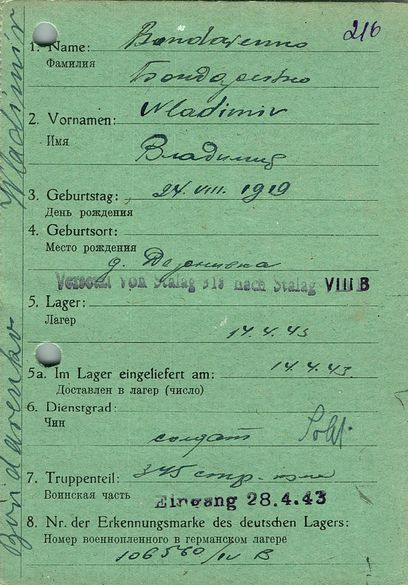 216
1. Name: Bondarenko
Фамилия
Бондаренко
2. Vornamen: Wladimir
Имя
Владимир
3. Geburtstag: 24. VIII. 1919
День рождения
4. Geburtsort:
Место рождения
д.
Versetzt von Stalag 318 nach Stalag VIII B
5. Lager:
Лагер
14.4.43
5a. Im Lager eingeliefert am: 14.4.43.
Доставлен в лагер (число)
6. Dienstgrad:
Чин
солдат Sold.
7. Truppenteil: 345 стр. полк
Воинская часть
Eingang 28.4.43
8. Nr. der Erkennungsmarke des deutschen Lagers:
Номер военнопленного в германском лагере
106560/IV B
Bondarenko Wladimir